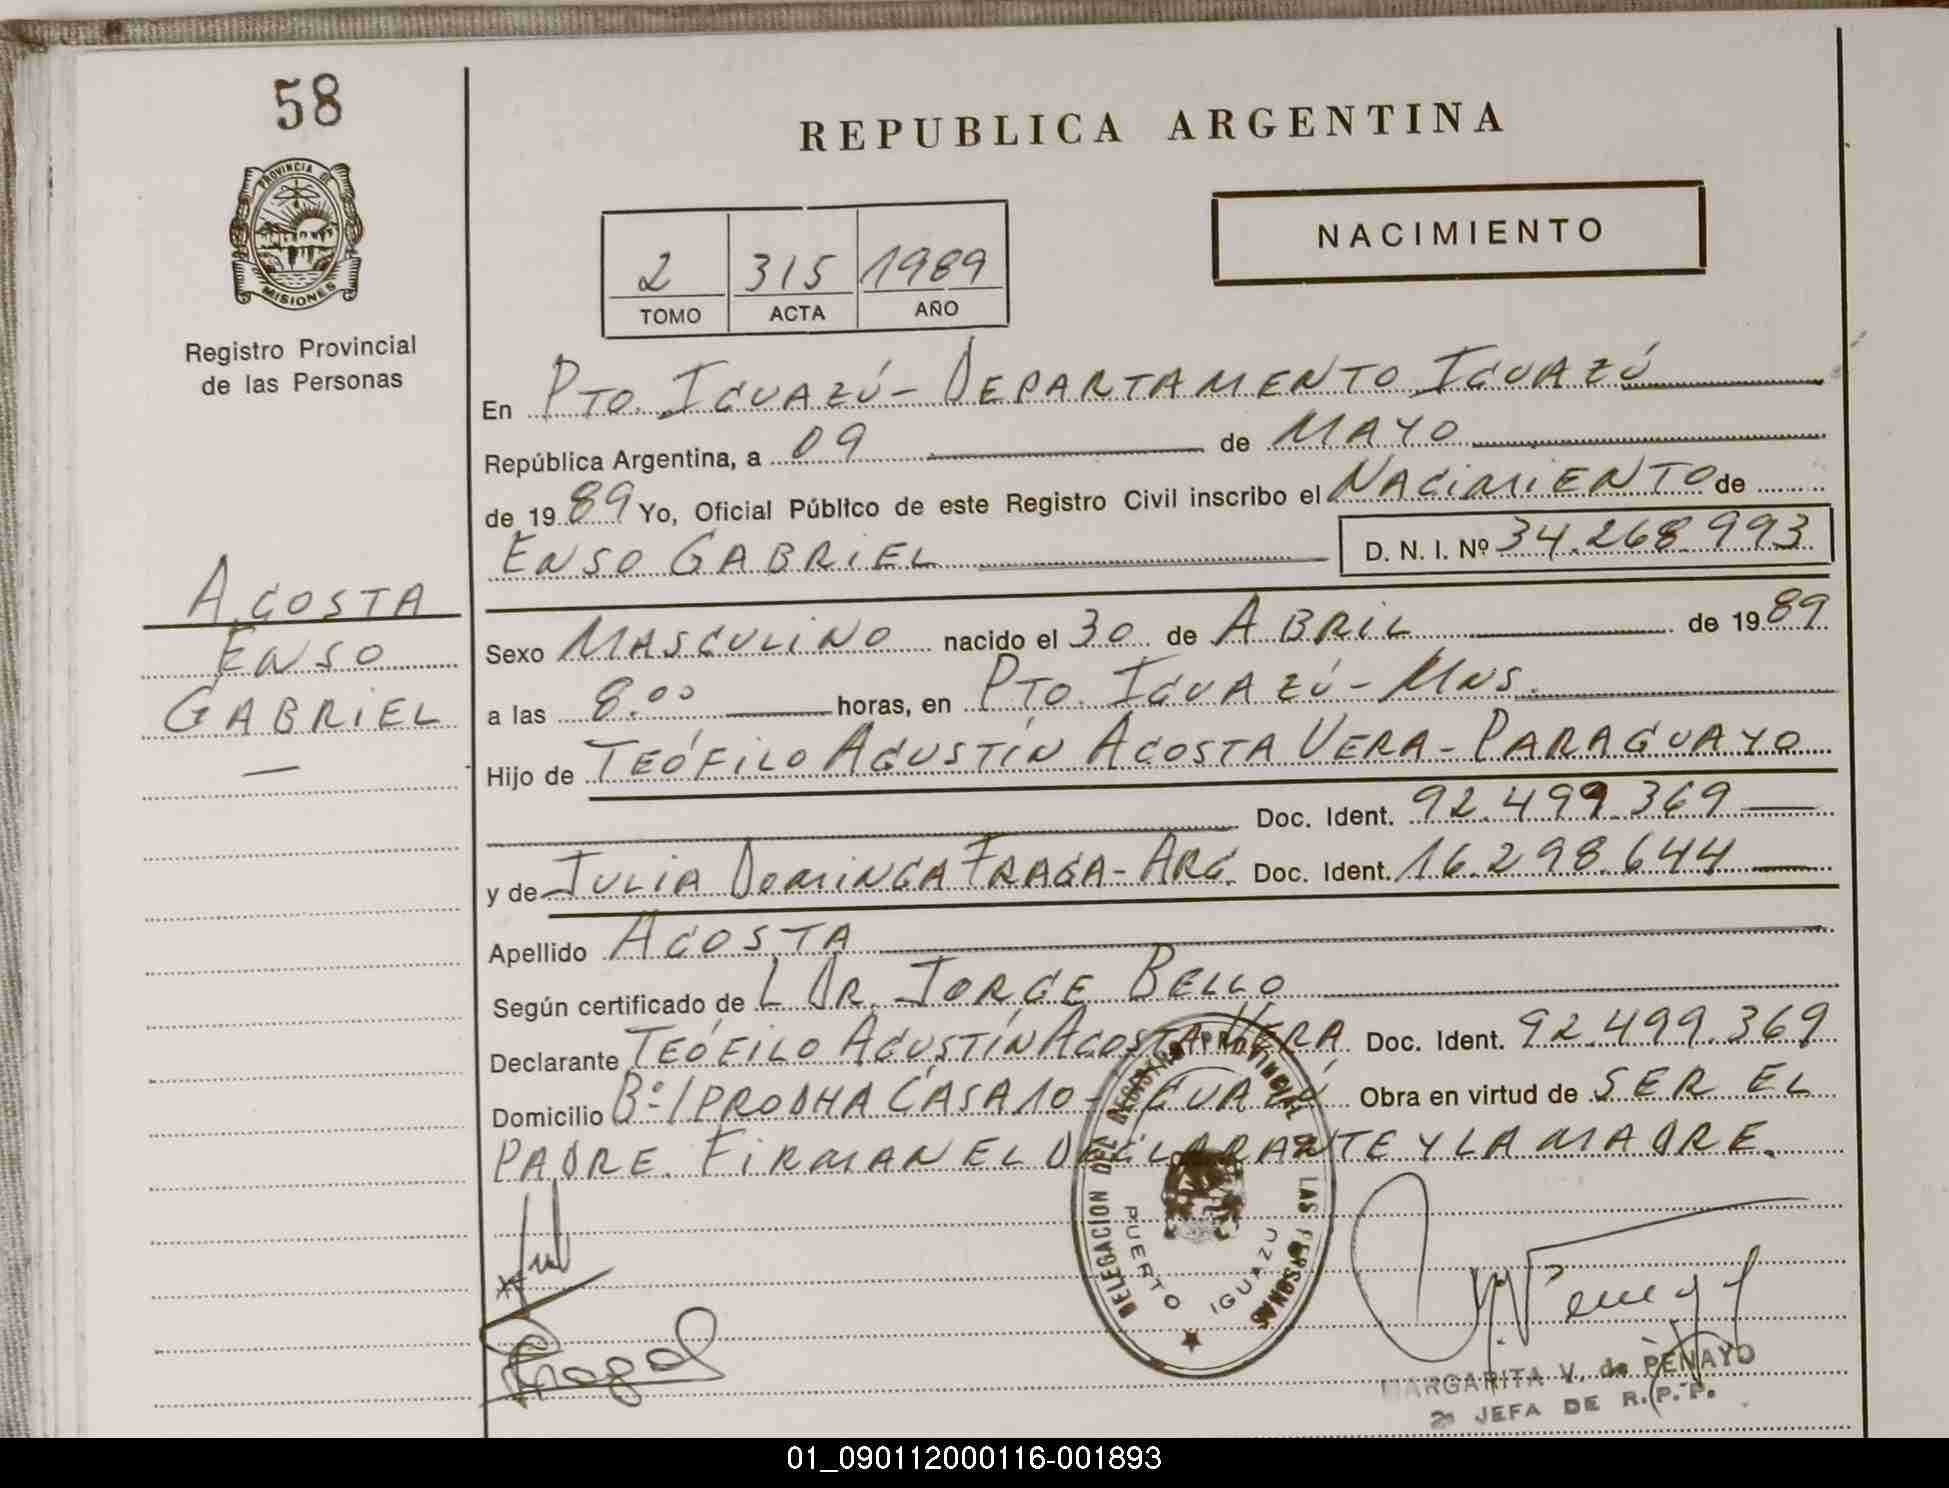 58
REPUBLICA ARGENTINA
PROVINCIA DE MISIONES
NACIMIENTO
2 315 1989
TOMO ACTA AÑO
Registro Provincial
de las Personas
En PTO. IGUAZÚ - DEPARTAMENTO IGUAZÚ
República Argentina, a 09 de MAYO
de 1989 Yo, Oficial Público de este Registro Civil inscribo el NACIMIENTO de
ENSO GABRIEL D. N. I. Nº 34.268.993
ACOSTA
ENSO
GABRIEL
Sexo MASCULINO nacido el 30 de ABRIL de 1989
a las 8.00 horas, en PTO. IGUAZÚ - MNS.
Hijo de TEÓFILO AGUSTÍN ACOSTA VERA - PARAGUAYO
Doc. Ident. 92.499.369
y de JULIA DOMINGA FRAGA - ARG. Doc. Ident. 16.298.644
Apellido ACOSTA
Según certificado de L DR. JORGE BELLO
Declarante TEÓFILO AGUSTÍN ACOSTA VERA Doc. Ident. 92.499.369
Domicilio Bº IPRODHA CASA 10 - IGUAZÚ Obra en virtud de SER EL
PADRE. FIRMAN EL DECLARANTE Y LA MADRE.
DELEGACION DEL REGISTRO PROVINCIAL DE LAS PERSONAS
PUERTO IGUAZU
Fraga
MARGARITA V. de PENAYO
2ª JEFA DE R.P.P.
01_090112000116-001893